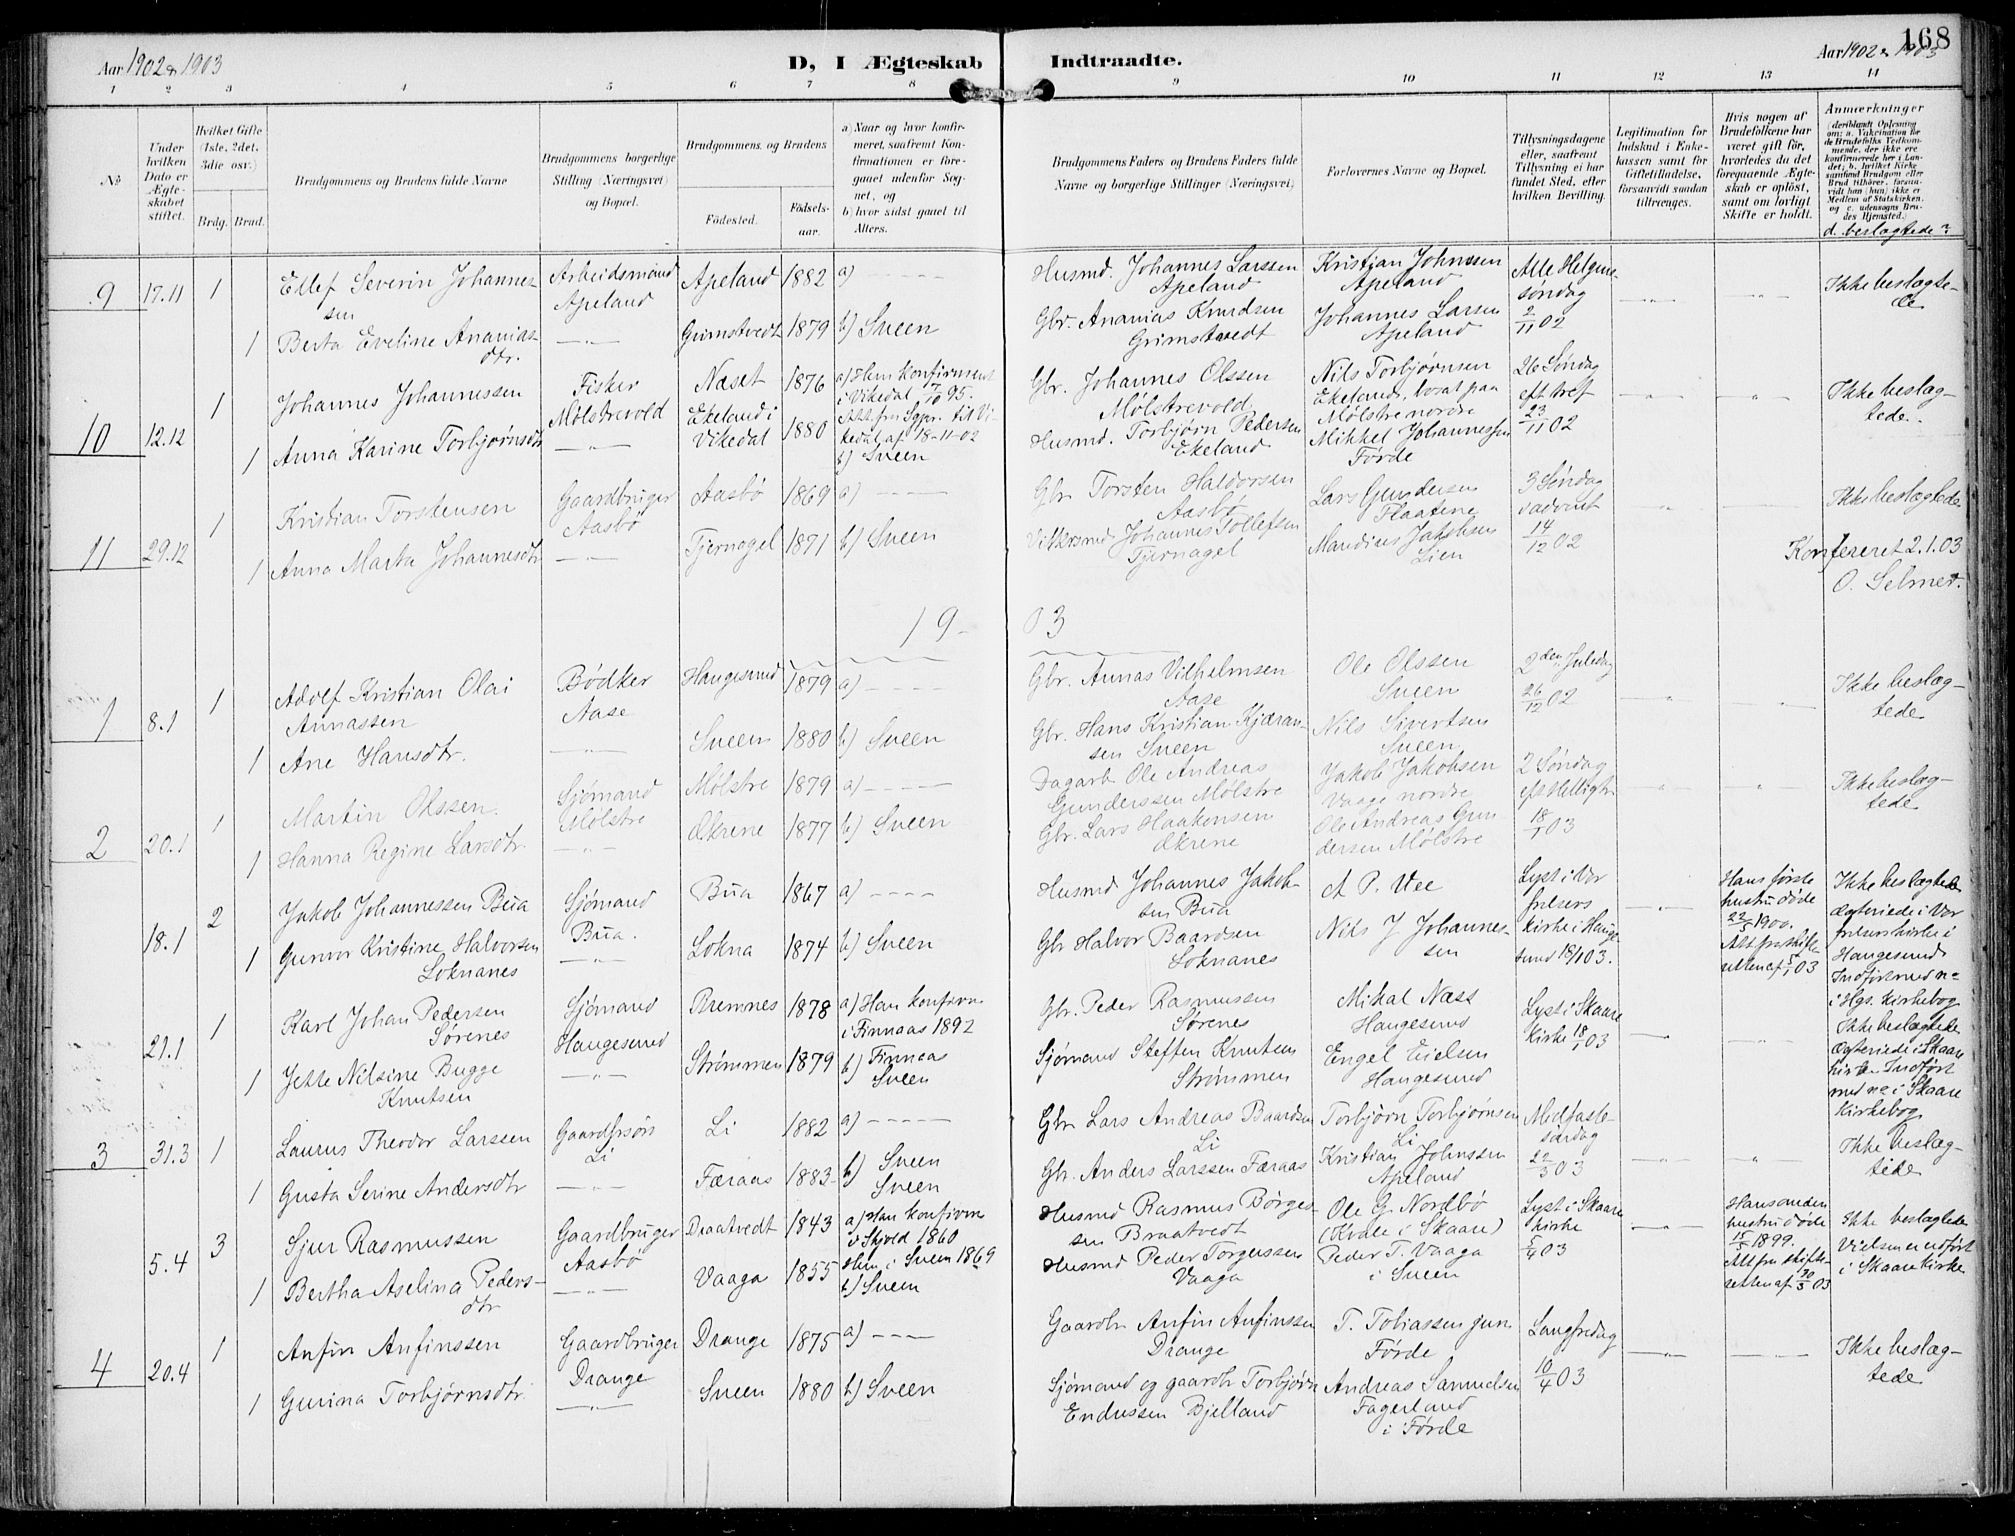 168
Aar 1902 & 1903
D, I Ægteskab Indtraadte.
Aar 1902 & 1903
1 2 3 4 5 6 7 8 9 10 11 12 13 14
No
Under hvilken Dato er Ægteskabet stiftet.
Hvilket Gifte (1ste, 2det, 3die osv.)
Brdg. Brud.
Brudgommens og Brudens fulde Navne
Brudgommens borgerlige Stilling (Næringsvei) og Bopæl.
Brudgommens og Brudens
Fødested.
Fødselsaar.
a) Naar og hvor konfirmeret, saafremt Konfirmationen er foregaaet udenfor Sognet, og
b) hvor sidst gaaet til Alters.
Brudgommens Faders og Brudens Faders fulde Navne og borgerlige Stillinger (Næringsvei)
Forlovernes Navne og Bopæl.
Tillysningsdagene eller, saafremt Tillysning ei har fundet Sted, efter hvilken Bevilling.
Legitimation for Indskud i Enkekassen samt for Giftetilladelse, forsaavidt saadan tiltrænges.
Hvis nogen af Brudefolkene har været gift før, hvorledes da det foregaaende Ægteskab er opløst, samt om lovligt Skifte er holdt.
Anmærkninger
(deriblandt Oplysning om: a. Vakcination for de Brudefolks Vedkommende, der ikke ere konfirmerede her i Landet; b. hvilket Kirkesamfund Brudgom eller Brud tilhører, forsaavidt han (hun) ikke er Medlem af Statskirken, og c. udensogns Brudes Hjemsted.)
d. beslægtede?
9 17.11 1 Ellef Severin Johannessen Arbeidsmand Apeland Apeland 1882 a) - - - - Husmd. Johannes Larssen Apeland Kristian Johnssen Apeland Alle Helgens søndag 2/11 02 Ikke beslægtede
1 Berta Eveline Ananiasdtr. Grimstvedt 1879 b) Sveen Gbr. Ananias Knudsen Grimstvedt Johannes Larsen Apeland
10 12.12 1 Johannes Johannessen Fisker Mølstrevold Næset 1876 a) Hun konfirmert i Vikedal 7/10 95. Gbr. Johannes Olssen Mølstrevold Nils Torbjørnsen Ekeland, losat paa Mølstre nordre 26 Søndag eft tref 23/11 02 Ikke beslægtede.
1 Anna Karine Torbjørnsdtr Ekeland i Vikedal 1880 Att. fra Sgpr. til Vikedal af 18-11-02 b) Sveen Husmd. Torbjørn Pedersen Ekeland Mikkel Johannessen Førde
11 29.12 1 Kristian Torstensen Gaardbruger Aasbø Aasbø 1869 a) - - - - Gbr Torsten Haldorsen Aasbø Lars Gundersen Flaatene 3 Søndag i advent 14/12 02 Ikke beslægtede
1 Anna Marta Johannesdtr Tjernagel 1871 b) Sveen Johannes Tollefsen Tjernagel Maudius Jakobsen Lien
Konfereret 2.1.03
O. Selmer.
19-03
1 8.1 1 Adolf Kristian Olai Annassen Bødker Aase Haugesund 1879 a) - - - - Gbr. Annas Vilhelmsen Aase Ole Olssen Sveen 2den Juledag 26/12 02 Ikke beslægtede
1 Ane Hansdtr. Sveen 1880 b) Sveen Gbr. Hans Kristian Kjæransen Sveen Nils Sivertsen Sveen
2 20.1 1 Martin Olssen. Sjømand Mølstre Mølstre 1879 a) - - - - Dagarb Ole Andreas Gunderssen Mølstre Jakob Jakobsen Vaage nordre 2 Søndag eft Helligtr 18/1 03 Ikke beslægtede
1 Hanna Regine Larsdtr Økrene 1877 b) Sveen Gbr. Lars Haakonsen Økrene Ole Andreas Gundersen Mølstre
18.1 2 Jakob Johannessen Bua Sjømand Bua. Bua 1867 a) - - - - Husmd Johannes Jakobsen Bua A P. Vee Lyst i Vor frelsers kirke i Haugesund 18/1 03. Hans første hustru døde 22/5 1900. Att fra skifteretten af 5/1 03 Ikke beslægtede Ægteviede i Vor frelsers kirke i Haugesund. Indført med no i Hgs. kirkebog
1 Gunvor Kristine Halvorsen Loknanes Lokna 1874 b) Sveen Gbr Halvor Baardsen Loknanes Nils J Johannessen
21.1 1 Karl Johan Pedersen Sørenes Sjømand Haugesund Bremnes 1878 a) Han konfirm i Finnaas 1892 Gbr. Peder Rasmussen Sørenes Mikal Næss Haugesund Lyst i Skaare Kirke 18/1 03 Ikke beslægtede Ægteviede i Skaare kirke Indført med no i Skaare Kirkebog
1 Jette Nilsine Bugge Knutsen Strømmen 1879 b) Finnaas Sveen Sjømand Steffen Knutsen Strømmen Engel Eielsen Haugesund
3 31.3 1 Laurus Theodor Larssen Gaardbrsøn Li Li 1882 a) - - - - Gbr Lars Andreas Baardsen Li Torbjørn Torbjørnsen Li Midfastesøndag 22/3 03 Ikke beslægtede
1 Gusta Serine Andersdtr Færaas 1883 b) Sveen Sveen Gbr. Anders Larssen Færaas Kristian Johnssen Apeland
5.4 3 Sjur Rasmussen Gaardbruger Aasbø Draatvedt 1843 a) Han konfirm i Skjold 1860 Husmd Rasmus Børgessen Braatvedt Ole G Nordbø (Kvale i Skaare) Lyst i Skaare kirke 5/4 03 Hans anden hustru døde 15/5 1899. Att fra skifteretten af 30/3 03 Ikke beslægtede Vielsen er udført i Skaare Kirke
1 Bertha Aselina Pedersdtr Vaaga 1855 Hun i Sveen 1869 b) Sveen Husmd Peder Torgerssen Vaaga Peder T. Vaaga i Sveen
4 20.4 1 Anfin Anfinssen Gaardbruger Drange Drange 1875 a) - - - Gaardbr Anfin Anfinssen Drange T. Tobiassen jun Førde Langfredag 10/4 03 Ikke beslægtede
1 Gurina Torbjørnsdtr. Sveen 1880 b) Sveen Sjømand og gaardbr Torbjørn Endressen Bjelland Andreas Samuelsen Fagerland i Førde